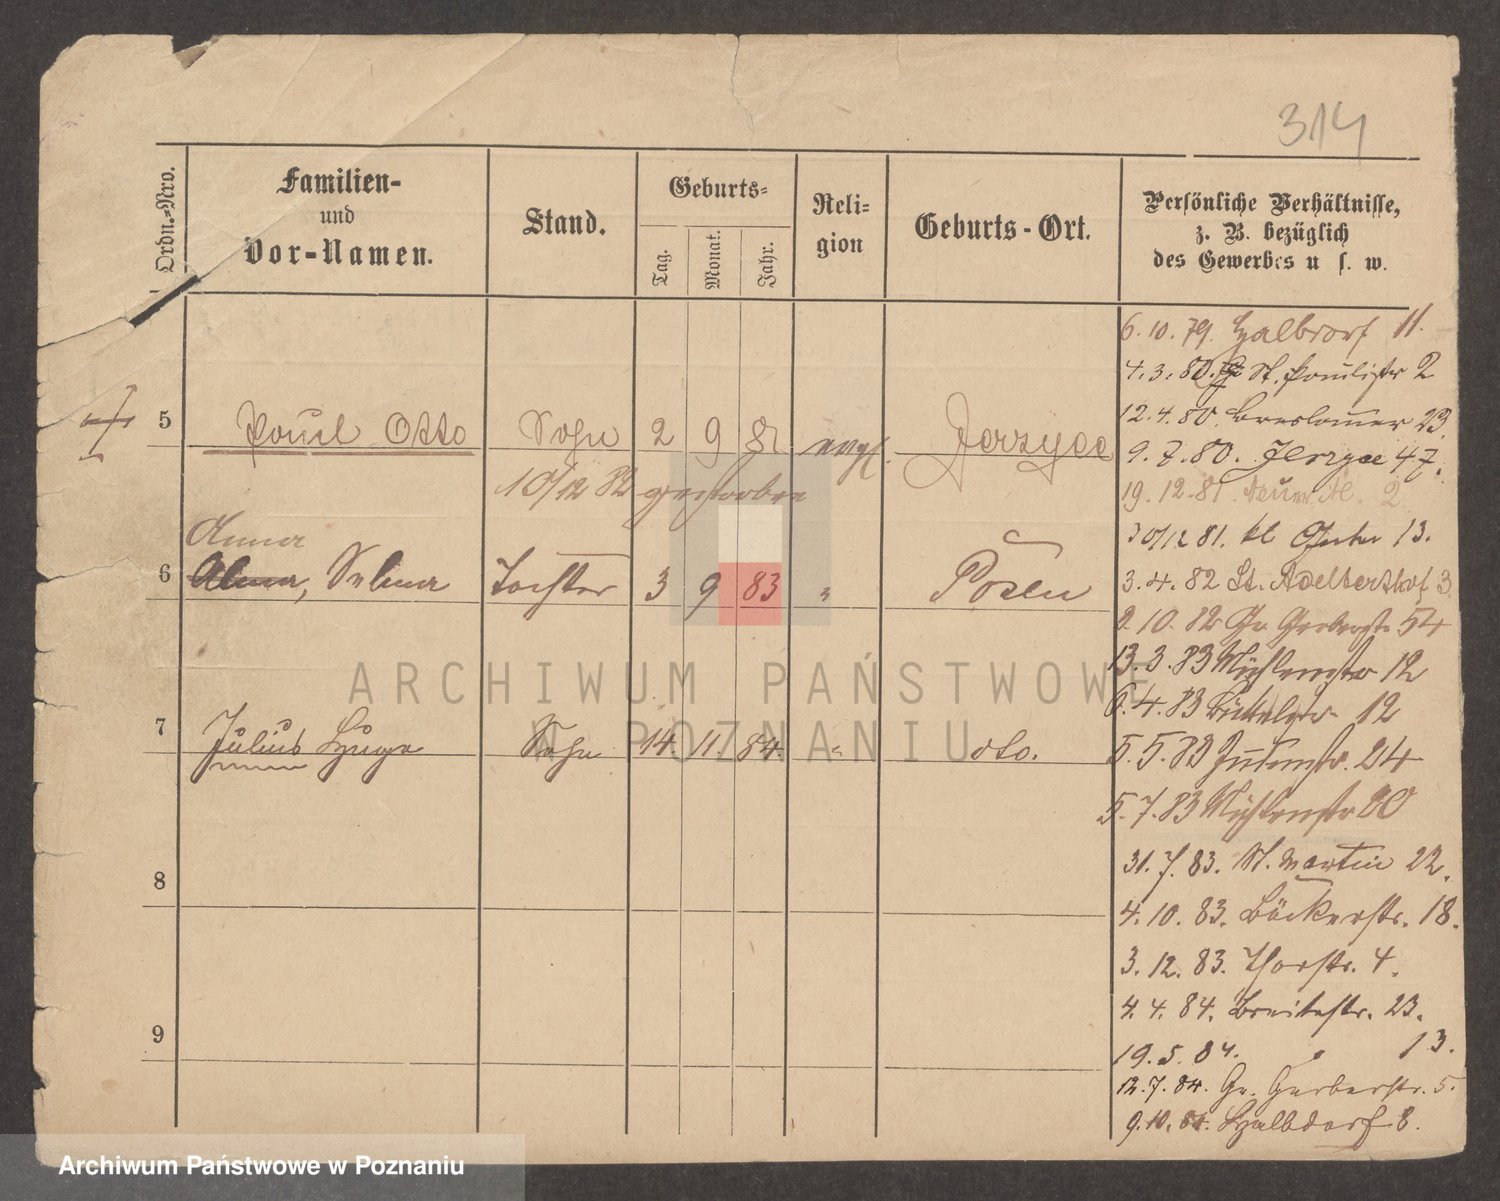 314
Ordn.-Nro.
Familien-
und
Vor-Namen.
Stand.
Geburts-
Tag.
Monat.
Jahr.
Reli-
gion
Geburts-Ort.
Persönliche Verhältnisse,
z. B. bezüglich
des Gewerbes u. s. w.
5 Paul Otto Sohn 2 9 81 evgl. Jerzyce
10/12 82 gestorben
Anna
6 Alma, Selma Tochter 3 9 83 " Posen
7 Julius Hugo Sohn 14. 11. 84. " dto.
8
9
6. 10. 79. Halbdorf 11.
4. 3. 80. St. Paulistr 2
12. 4. 80. Breslauer 23.
9. 7. 80. Jerzyce 47.
19. 12. 81. 2
30/12 81. kl 13.
3. 4. 82 St. Adelberthof 3.
2. 10. 82 Gr. Gerberstr 54
13. 3. 83 Mühlenstr 12
6. 4. 83 Büttelstr. 12
5. 5. 83 Judenstr. 24
5. 7. 83 Mühlenstr 20
31. 7. 83. St. Martin 22.
4. 10. 83. Bäckerstr. 18.
3. 12. 83. Thorstr. 4.
4. 4. 84. Breitestr. 23.
19. 5. 84. " 13.
12. 7. 84. Gr. Gerberstr. 5.
9. 10. 84. Halbdorf 8.
ARCHIWUM PAŃSTWOWE
W POZNANIU
Archiwum Państwowe w Poznaniu